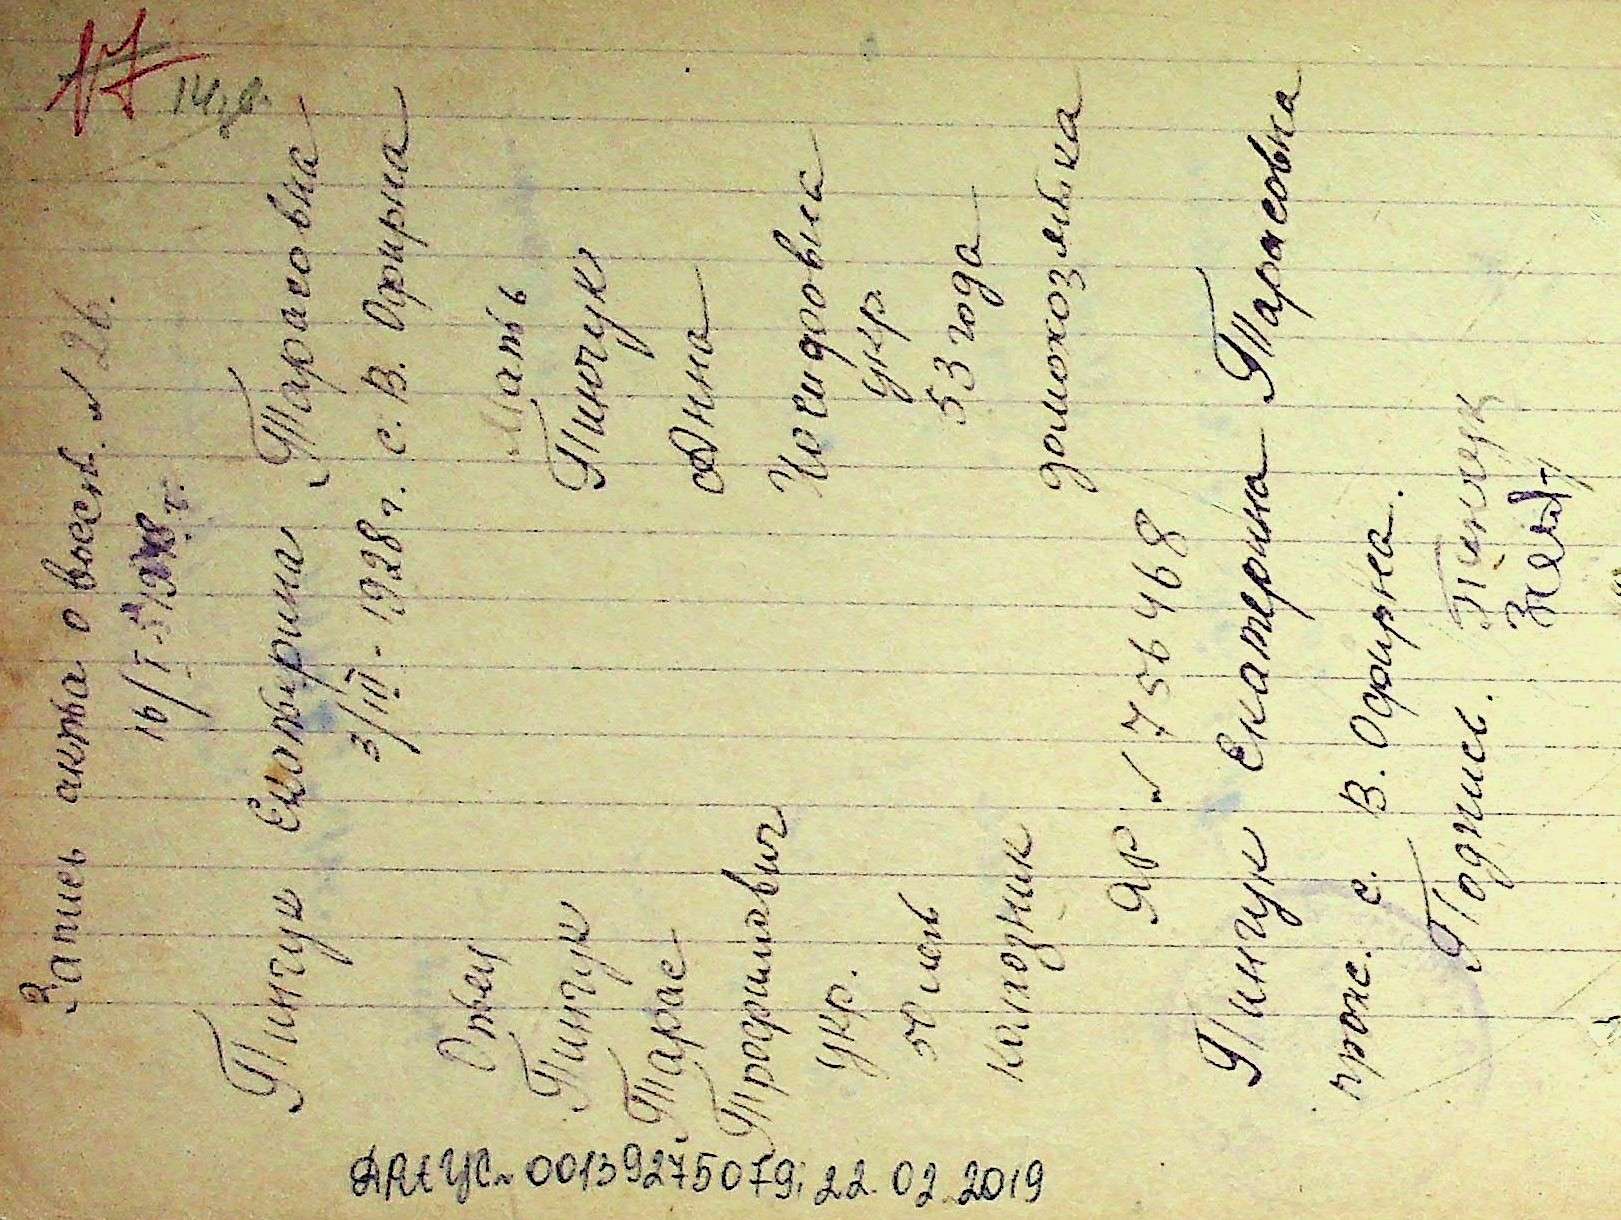 17
14 г.
Запись акта о восст. № 26.
16/I-51948 г.
Пинчук Екатирина Тарасовна
3/III-1928 г. с. В. Офирна
Отец
Пинчук
Тарас
Трофимович
укр.
50 лет
колгозник
Мать
Пинчук
Анна
Иосидовна
укр.
53 года
домохозяйка
ЯР № 756468
Пинчук Екатерина Тарасовна
прож. с. В. Офирна.
Подпись. Пинчук
00139275079; 22.02.2019